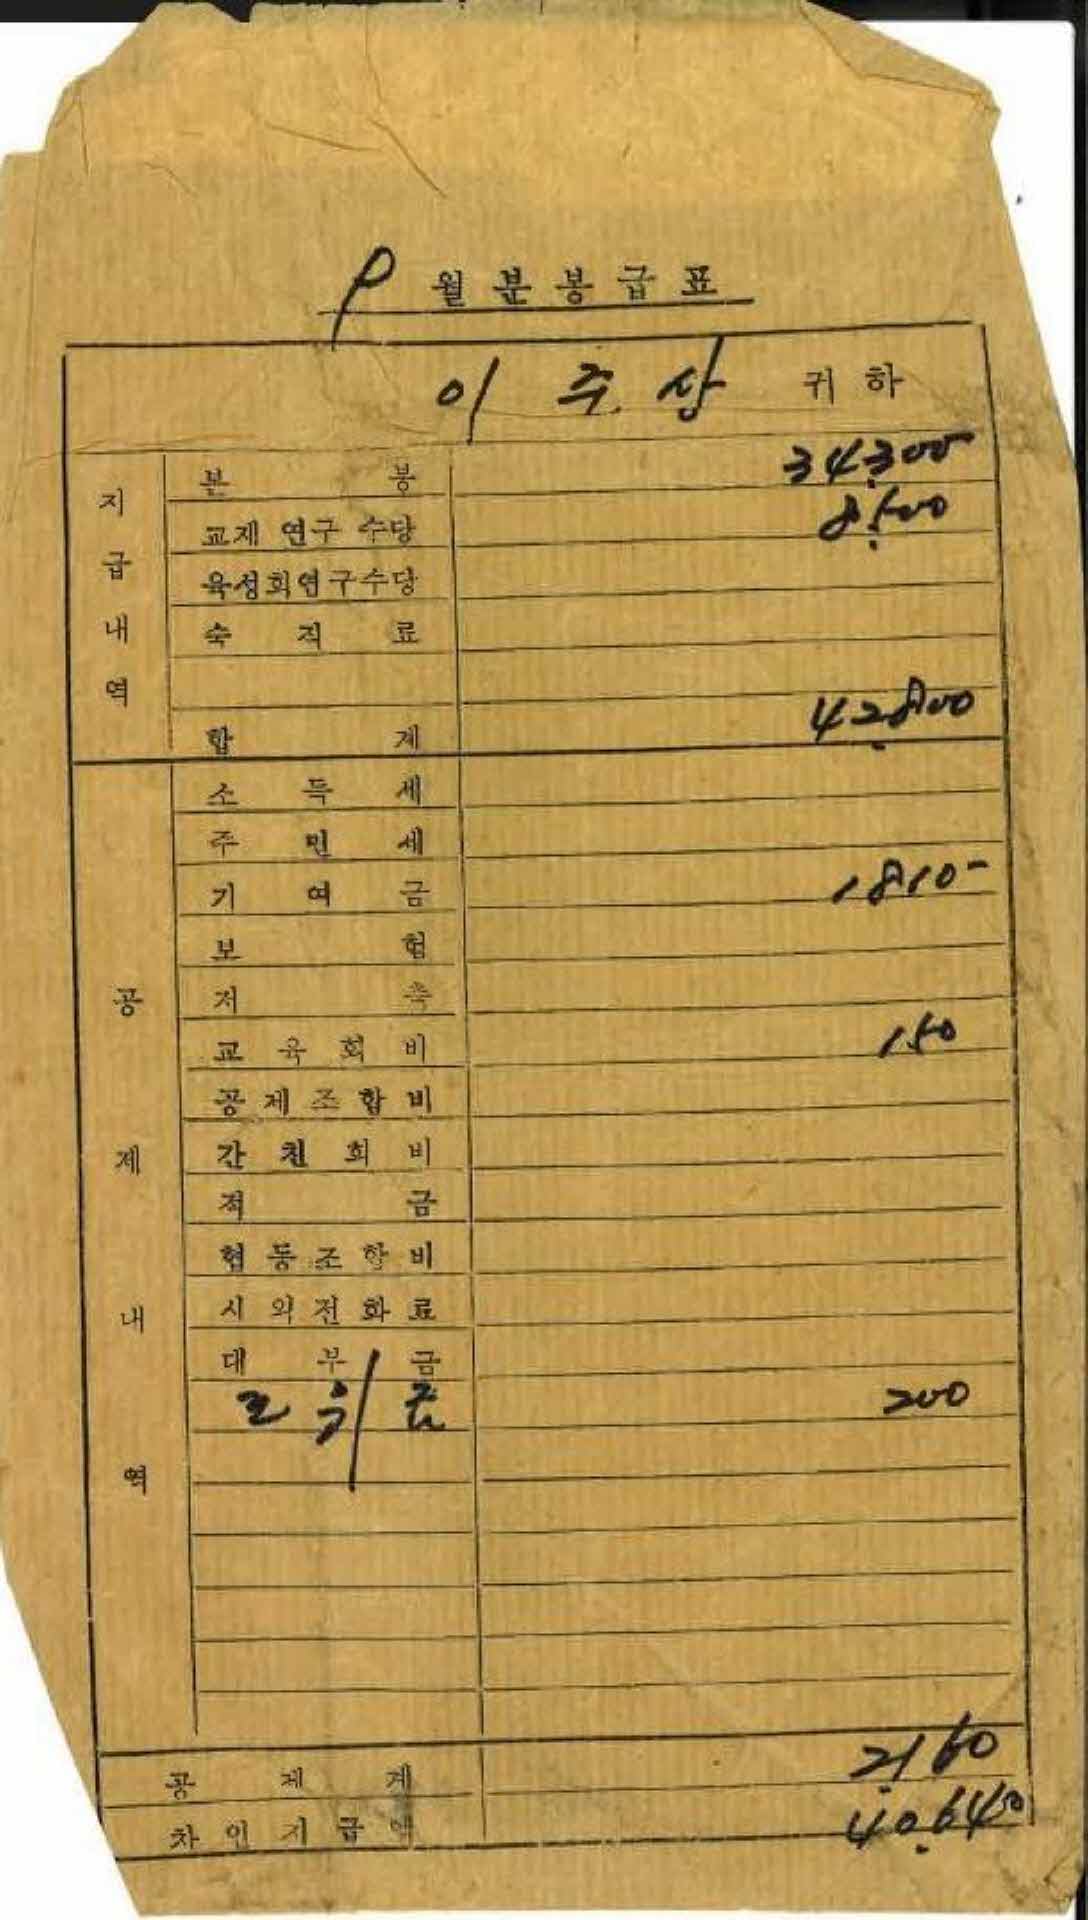 9 월분봉급표
이 주 상 귀하
지급내역
본봉 34,300
교재연구수당 8,500
육성회연구수당
숙직료
합계 42,800
공제내역
소득세
주민세
기여금 1810-
보험
저축
교육회비 150
공제조합비
간친회비
적금
협동조합비
시외전화료
대부금
조위금 200
공제계 2,160
차인지급액 40,640